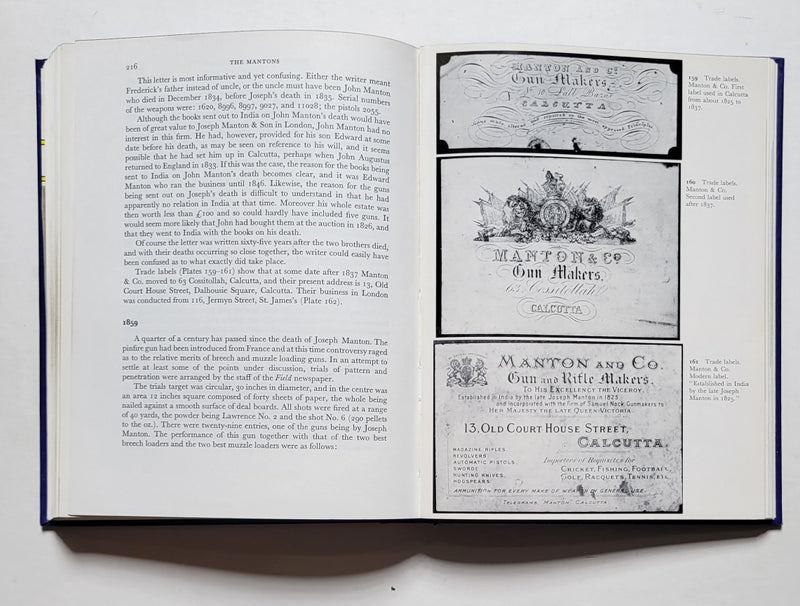 216
THE MANTONS
This letter is most informative and yet confusing. Either the writer meant
Frederick's father instead of uncle, or the uncle must have been John Manton
who died in December 1834, before Joseph's death in 1835. Serial numbers
of the weapons were: 1620, 8996, 8997, 9027, and 11028; the pistols 2055.
Although the books sent out to India on John Manton's death would have
been of great value to Joseph Manton & Son in London, John Manton had no
interest in this firm. He had, however, provided for his son Edward at some
date before his death, as may be seen on reference to his will, and it seems
possible that he had set him up in Calcutta, perhaps when John Augustus
returned to England in 1833. If this was the case, the reason for the books being
sent to India on John Manton's death becomes clear, and it was Edward
Manton who ran the business until 1846. Likewise, the reason for the guns
being sent out on Joseph's death is difficult to understand in that he had
apparently no relation in India at that time. Moreover his whole estate was
then worth less than £100 and so could hardly have included five guns. It
would seem more likely that John had bought them at the auction in 1826, and
that they went to India with the books on his death.
Of course the letter was written sixty-five years after the two brothers died,
and with their deaths occurring so close together, the writer could easily have
been confused as to what exactly did take place.
Trade labels (Plates 159–161) show that at some date after 1837 Manton
& Co. moved to 63 Cossitollah, Calcutta, and their present address is 13, Old
Court House Street, Dalhousie Square, Calcutta. Their business in London
was conducted from 116, Jermyn Street, St. James's (Plate 162).
1859
A quarter of a century has passed since the death of Joseph Manton. The
pinfire gun had been introduced from France and at this time controversy raged
as to the relative merits of breech and muzzle loading guns. In an attempt to
settle at least some of the points under discussion, trials of pattern and
penetration were arranged by the staff of the Field newspaper.
The trials target was circular, 30 inches in diameter, and in the centre was
an area 12 inches square composed of forty sheets of paper, the whole being
nailed against a smooth surface of deal boards. All shots were fired at a range
of 40 yards, the powder being Lawrence No. 2 and the shot No. 6 (290 pellets
to the oz.). There were twenty-nine entries, one of the guns being by Joseph
Manton. The performance of this gun together with that of the two best
breech loaders and the two best muzzle loaders were as follows:
MANTON AND Co.
Gun Makers
No 10 Lall Bazar
CALCUTTA
Guns made, altered and repaired on the most approved Principles
159 Trade labels.
Manton & Co. First
label used in Calcutta
from about 1825 to
1837.
MANTON & Co.
Gun Makers,
63, Cossitollah
CALCUTTA
160 Trade labels.
Manton & Co.
Second label used
after 1837.
MANTON AND CO.
Gun and Rifle Makers,
TO HIS EXCELLENCY THE VICEROY,
Established in India by the late Joseph Manton in 1825
and incorporated with the firm of Samuel Nock, Gunmakers to
HER MAJESTY THE LATE QUEEN VICTORIA.
13, OLD COURT HOUSE STREET,
CALCUTTA.
MAGAZINE RIFLES,
REVOLVERS,
AUTOMATIC PISTOLS,
SWORDS
HUNTING KNIVES,
HOGSPEARS
Importers of Requisites for
CRICKET, FISHING, FOOTBALL,
GOLF, RACQUETS, TENNIS, Etc.
AMMUNITION FOR EVERY MAKE OF WEAPON IN GENERAL USE.
TELEGRAMS, MANTON, CALCUTTA.
161 Trade labels.
Manton & Co.
Modern label.
"Established in India
by the late Joseph
Manton in 1825."